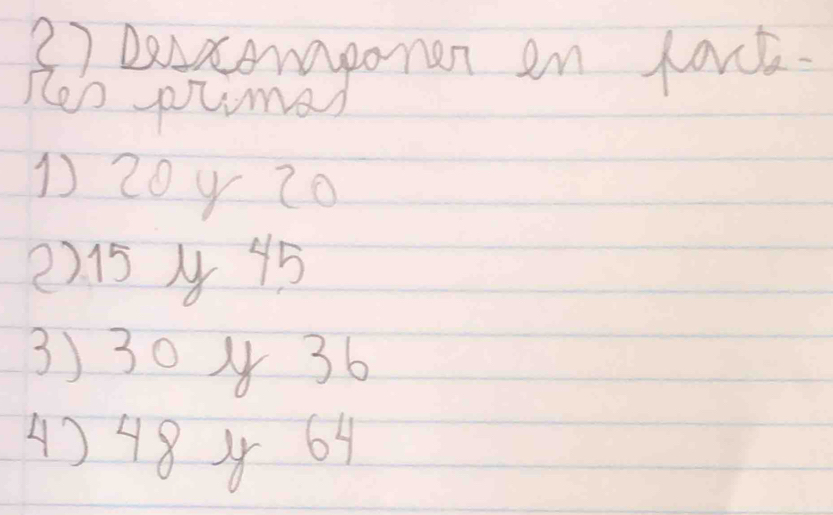 2) Descomponer en facto-
res primos
1) 20 y 20
2) 15 y 45
3) 30 y 36
4) 48 y 64